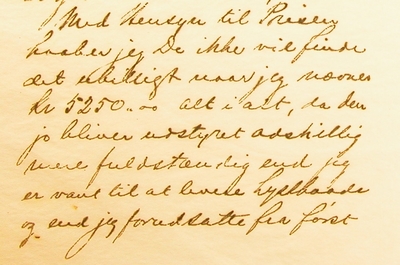 Med Hensyn til Prisen
haaber jeg De ikke vil finde
det ubilligt naar jeg nævner
kr 5250.00 alt i alt, da den
jo bliver udstyret adskillig
mere fuldstændig end jeg
er vant til at levere
og end jeg forudsatte fra først